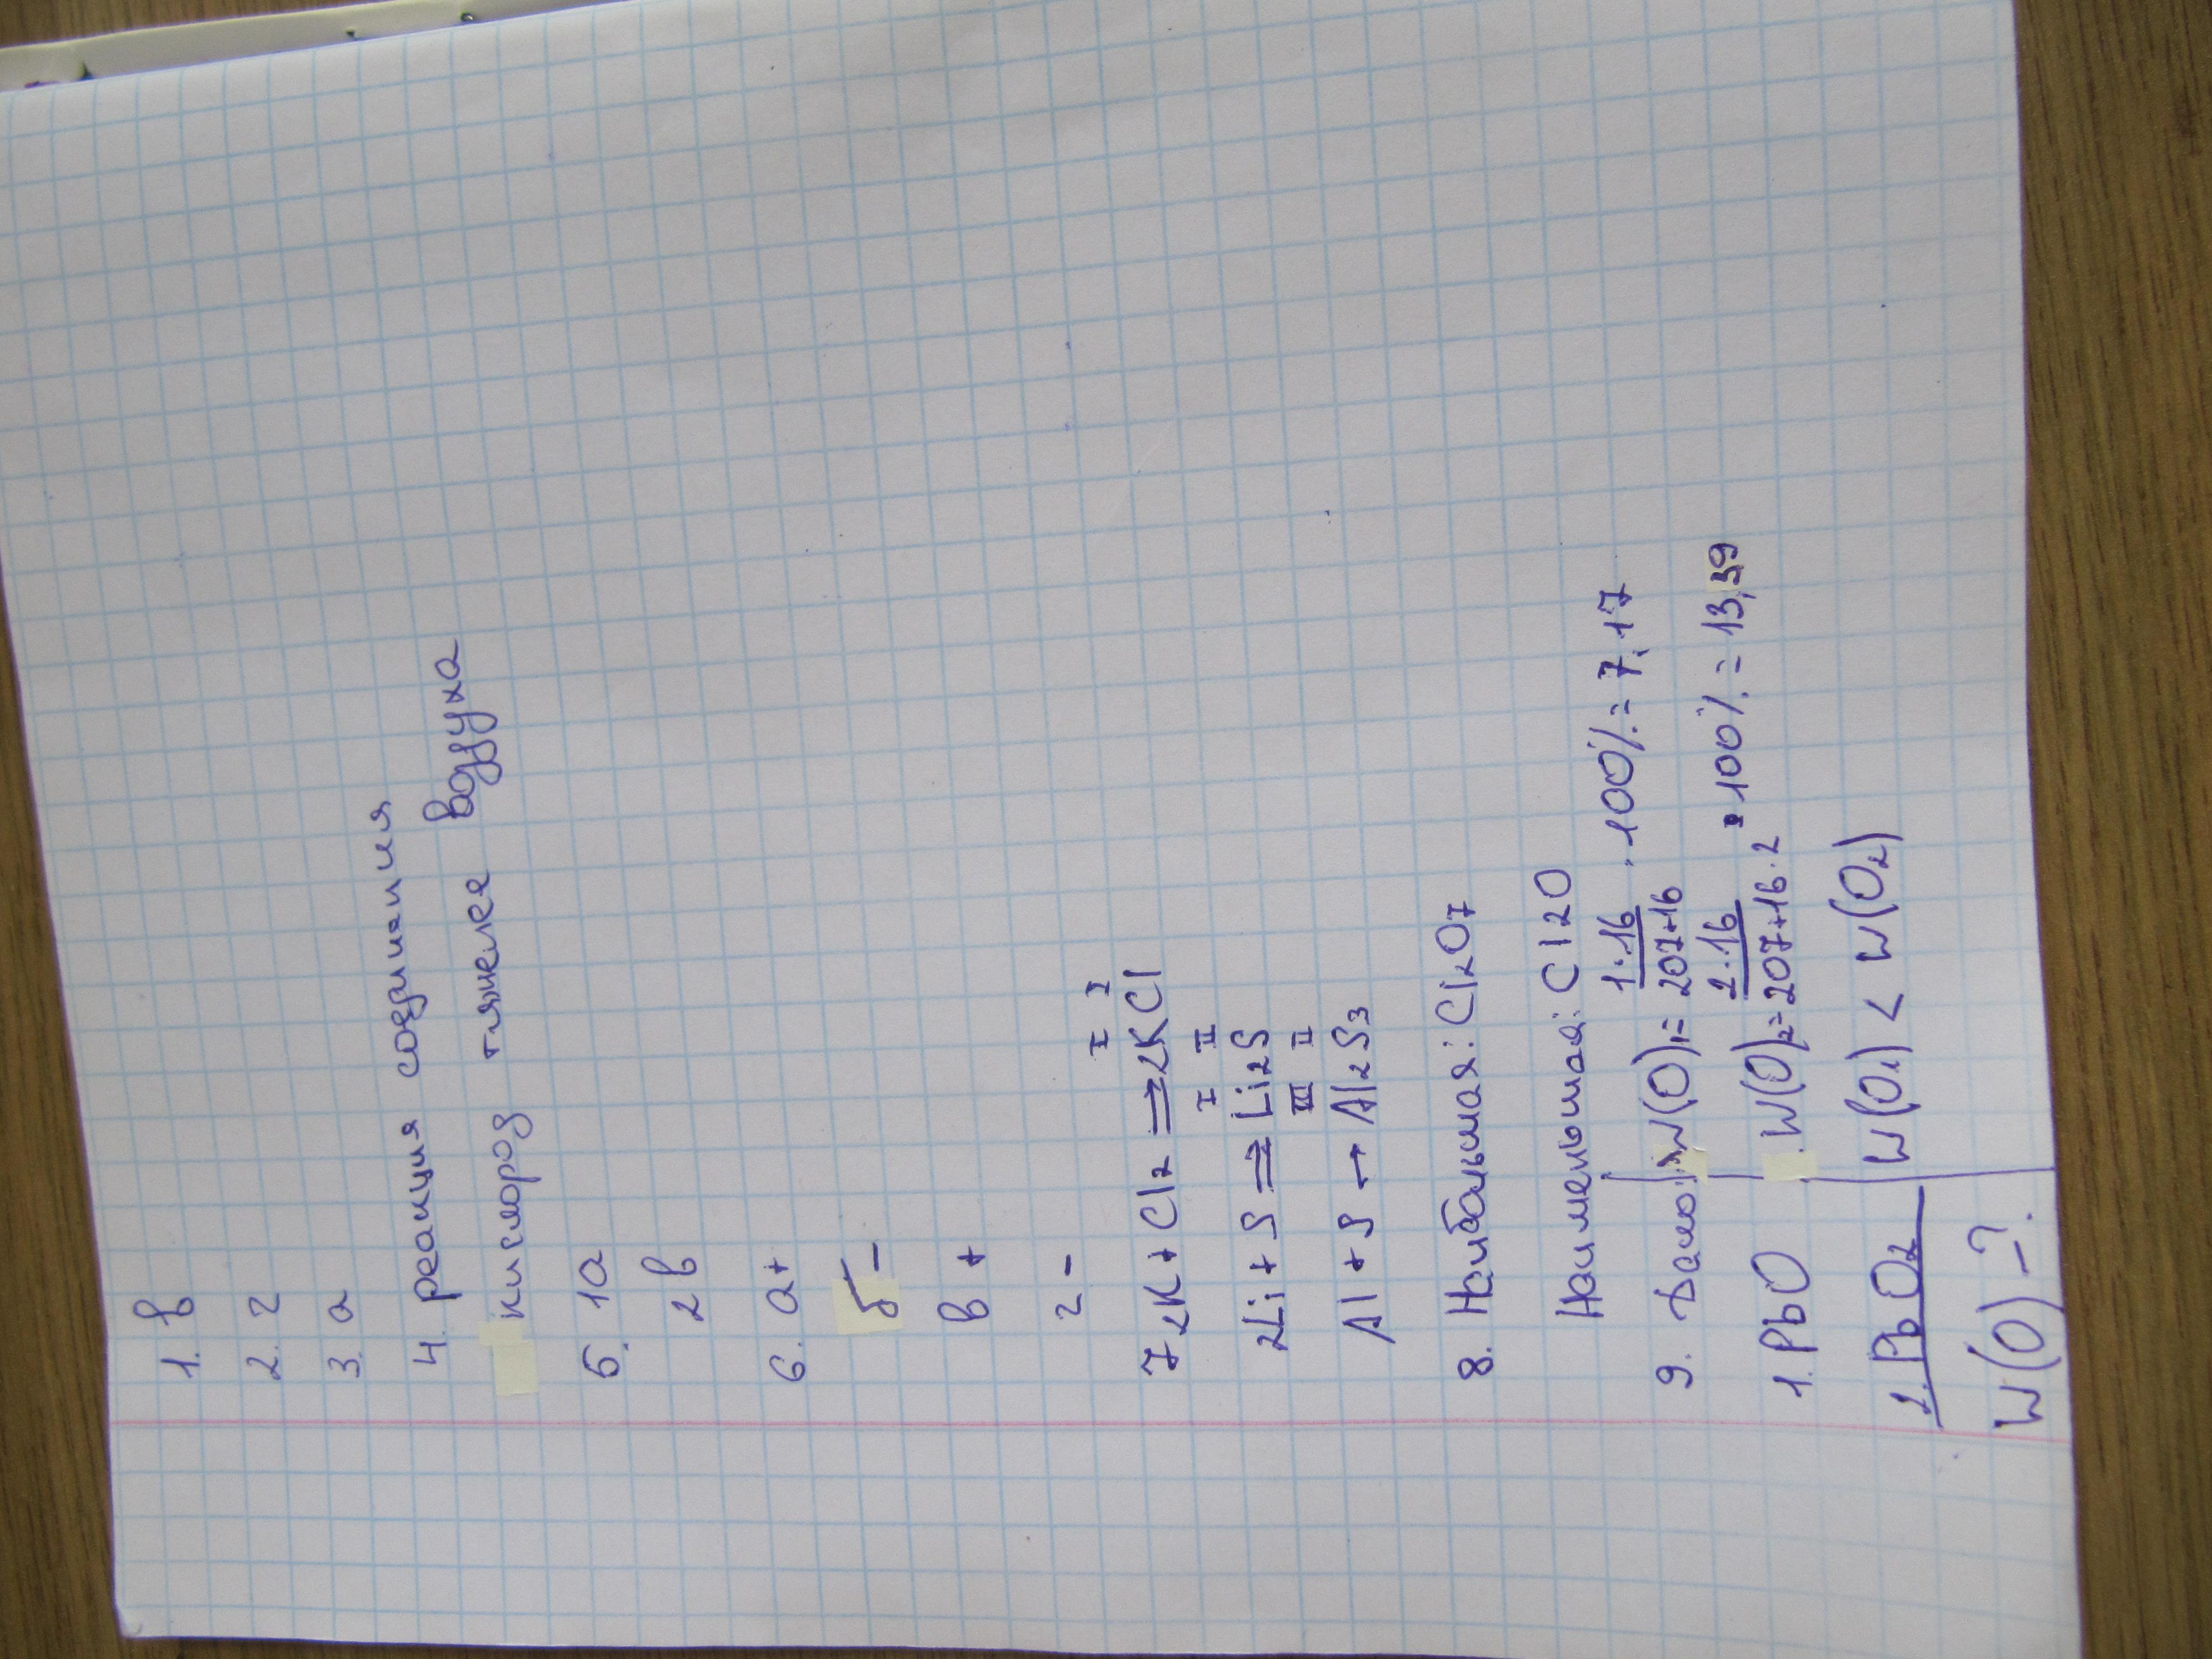 1. в
2. г
3. а
4. реакция соединения
кислород тяжелее воздуха
5. 1а
2 в
6. а+
б -
в +
г -
I I
7 2K + Cl2 ⇒ 2KCl
I II
2Li + S ⇒ Li2S
III II
Al + S → Al2S3
8. Наибольшая: Cl2O7
Наименьшая: Cl2O
9. Дано: W(O)1 = 1·16 / 207+16 · 100% = 7,17
1. PbO W(O)2 = 2·16 / 207+16·2 · 100% = 13,39
2. PbO2 W(O1) < W(O2)
W(O) -?